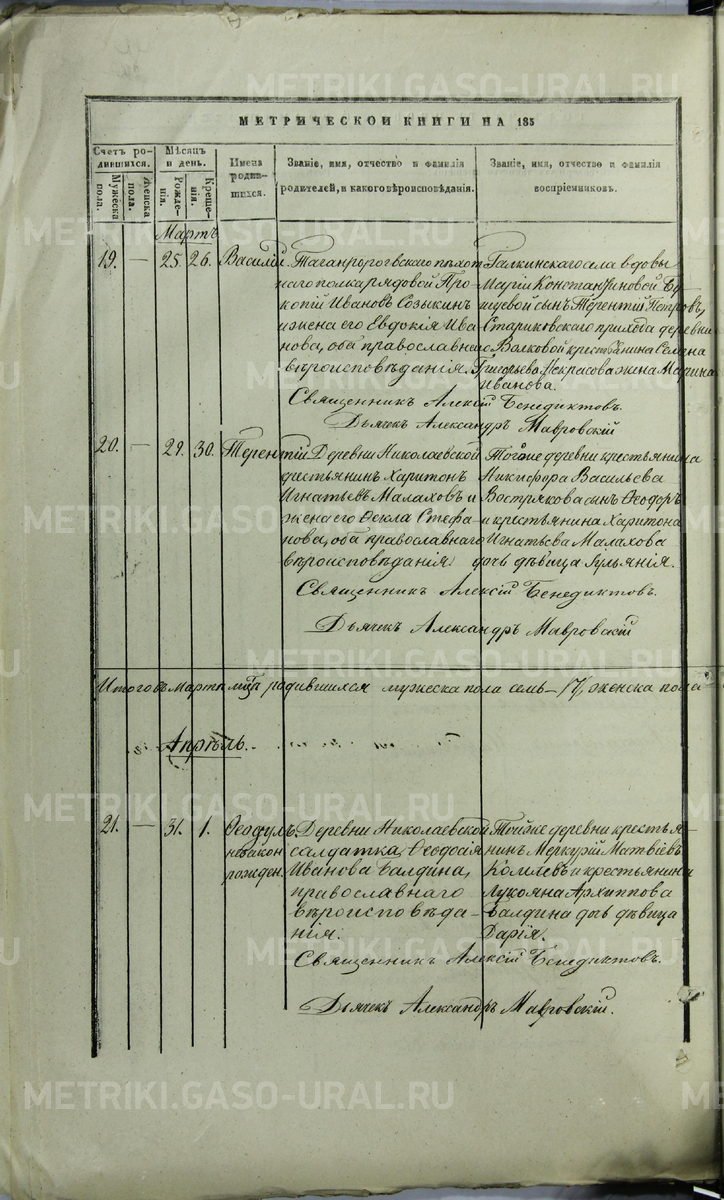 МЕТРИЧЕСКОЙ КНИГИ НА 185
Счетъ родившихся.
Мужеска пола.
Женска пола.
Мѣсяцъ и день.
Рожденія.
Крещенія.
Имена родившихся.
Званіе, имя, отчество и фамилія
родителей, и какого вѣроисповѣданія.
Званіе, имя, отчество и фамилія
воспріемниковъ.
Мартъ
19. — 25. 26. Василій
Таганрогогвскаго пѣхот
наго полка рядовой Про
копій Ивановъ Созыкинъ
и жена его Евдокія Ива
нова, оба православнаго
вѣроисповѣданія.
Галкинскаго села вдовы
Маріи Константиновой
сынъ Терентій Петровъ,
Стариковскаго прихода деревни
Волковой крестьянина Семена
Григорьева Некрасова жена Марина
Иванова.
Священникъ Алексій Бенедиктовъ.
Дьячекъ Александръ Мавровскій
20. — 29. 30. Терентій
Деревни Николаевской
крестьянинъ Харитонъ
Игнатьевъ Малаховъ и
жена его Ѳекла Стефа
нова, оба православнаго
вѣроисповѣданія
Тойже деревни крестьянина
Никифора Васильева
Вострякова сынъ Ѳеодоръ
и крестьянина Харитона
Игнатьева Малахова
дочь дѣвица Іульянія.
Священникъ Алексій Бенедиктовъ.
Дьячекъ Александръ Мавровскій
Итого въ Мартѣ мцѣ родившихся мужеска пола семь — /7/, женска пола
Апрѣль.
21. — 31. 1. Ѳеодулъ.
незакон
рожден.
Деревни Николаевской
салдатка, Ѳеодосія
Иванова Балдина,
православнаго
вѣроисповѣда-
нія.
Тойже деревни крестья-
нинъ Меркурій Матвѣевъ
и крестьянина
Лукояна Архиппова
Балдина дочь дѣвица
Дарія.
Священникъ Алексій Бенедиктовъ.
Дьячекъ Александръ Мавровскій.
METRIKI.GASO-URAL.RU